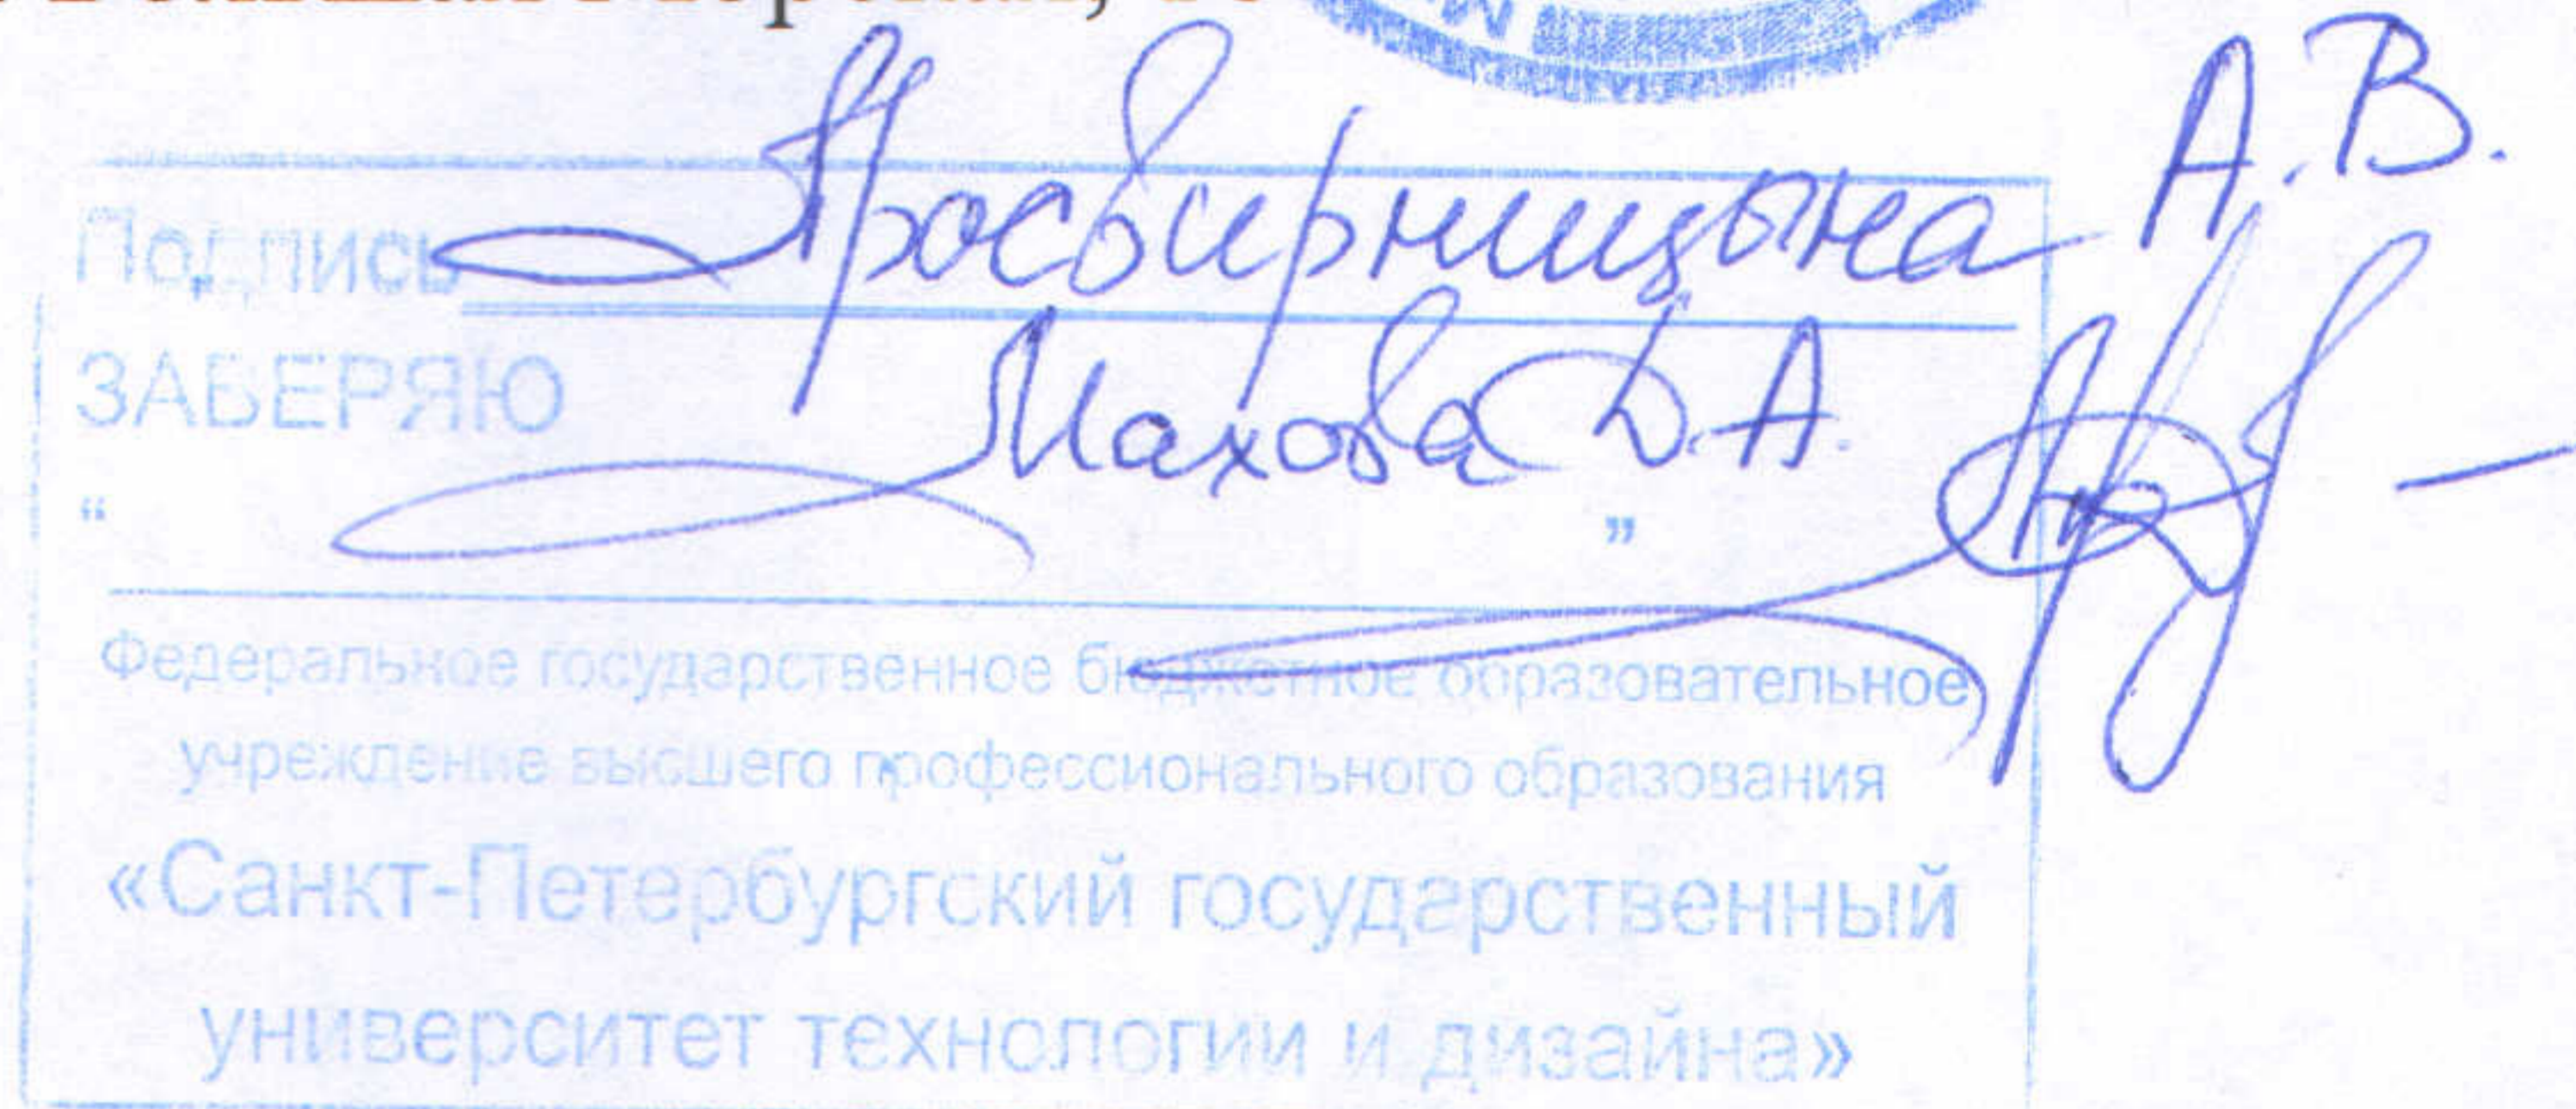 Подпись Просвирницына А.В.
ЗАВЕРЯЮ Махова Д.А.
“ ”
Федеральное государственное бюджетное образовательное
учреждение высшего профессионального образования
«Санкт-Петербургский государственный
университет технологии и дизайна»